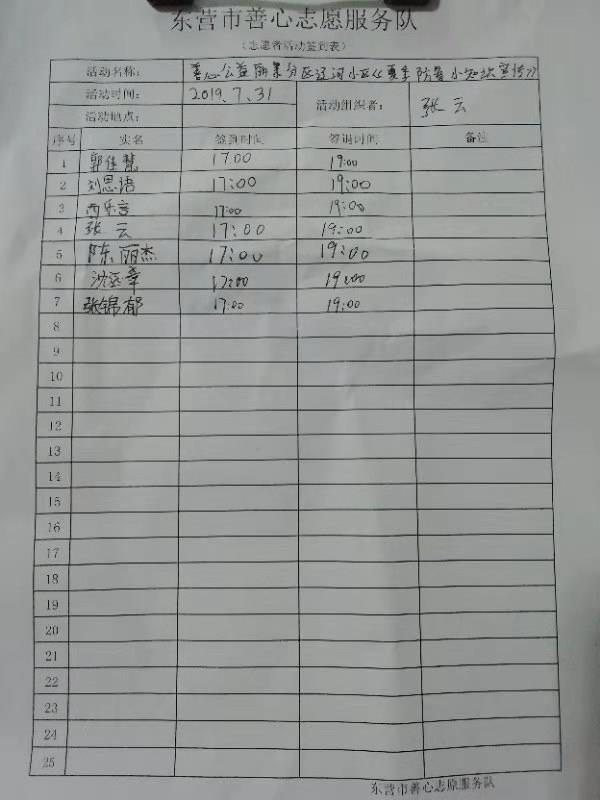 东营市善心志愿服务队
(志愿者活动签到表)
活动名称: 善心公益 分区辽河小区《夏季防暑小知识宣传》
活动时间: 2019.7.31 活动组织者: 张云
活动地点:
序号 实名 签到时间 签退时间 备注
1 郭佳慧 17:00 19:00
2 刘思语 17:00 19:00
3 17:00 19:00
4 张云 17:00 19:00
5 陈丽杰 17:00 19:00
6 17:00 19:00
7 张锦郁 17:00 19:00
8
9
10
11
12
13
14
15
16
17
18
19
20
21
22
23
24
25
东营市善心志愿服务队